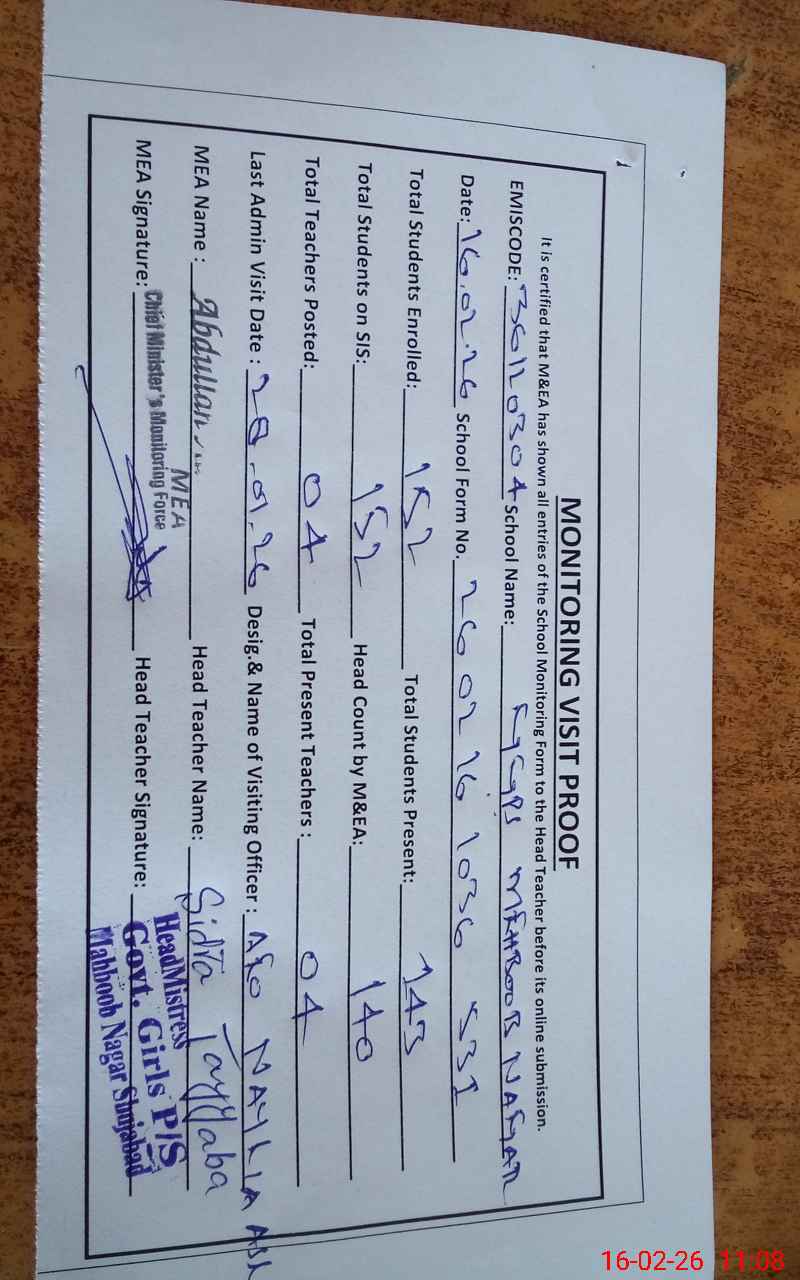 MONITORING VISIT PROOF
It is certified that M&EA has shown all entries of the School Monitoring Form to the Head Teacher before its online submission.
EMISCODE: 36112030A School Name: GGPS MEHBOOB NAGAR
Date: 16.02.26 School Form No. 26 02 16 1036 531
Total Students Enrolled: 152 Total Students Present: 143
Total Students on SIS: 152 Head Count by M&EA: 140
Total Teachers Posted: 04 Total Present Teachers : 04
Last Admin Visit Date : 20.01.26 Desig.& Name of Visiting Officer : AEO
MEA Name : Abdullah Head Teacher Name: Sidra Tayyaba
MEA
MEA Signature: Chief Minister's Monitoring Force Head Teacher Signature:
HeadMistress
Govt. Girls P/S
Mahboob Nagar Shujabad
16-02-26 11:08